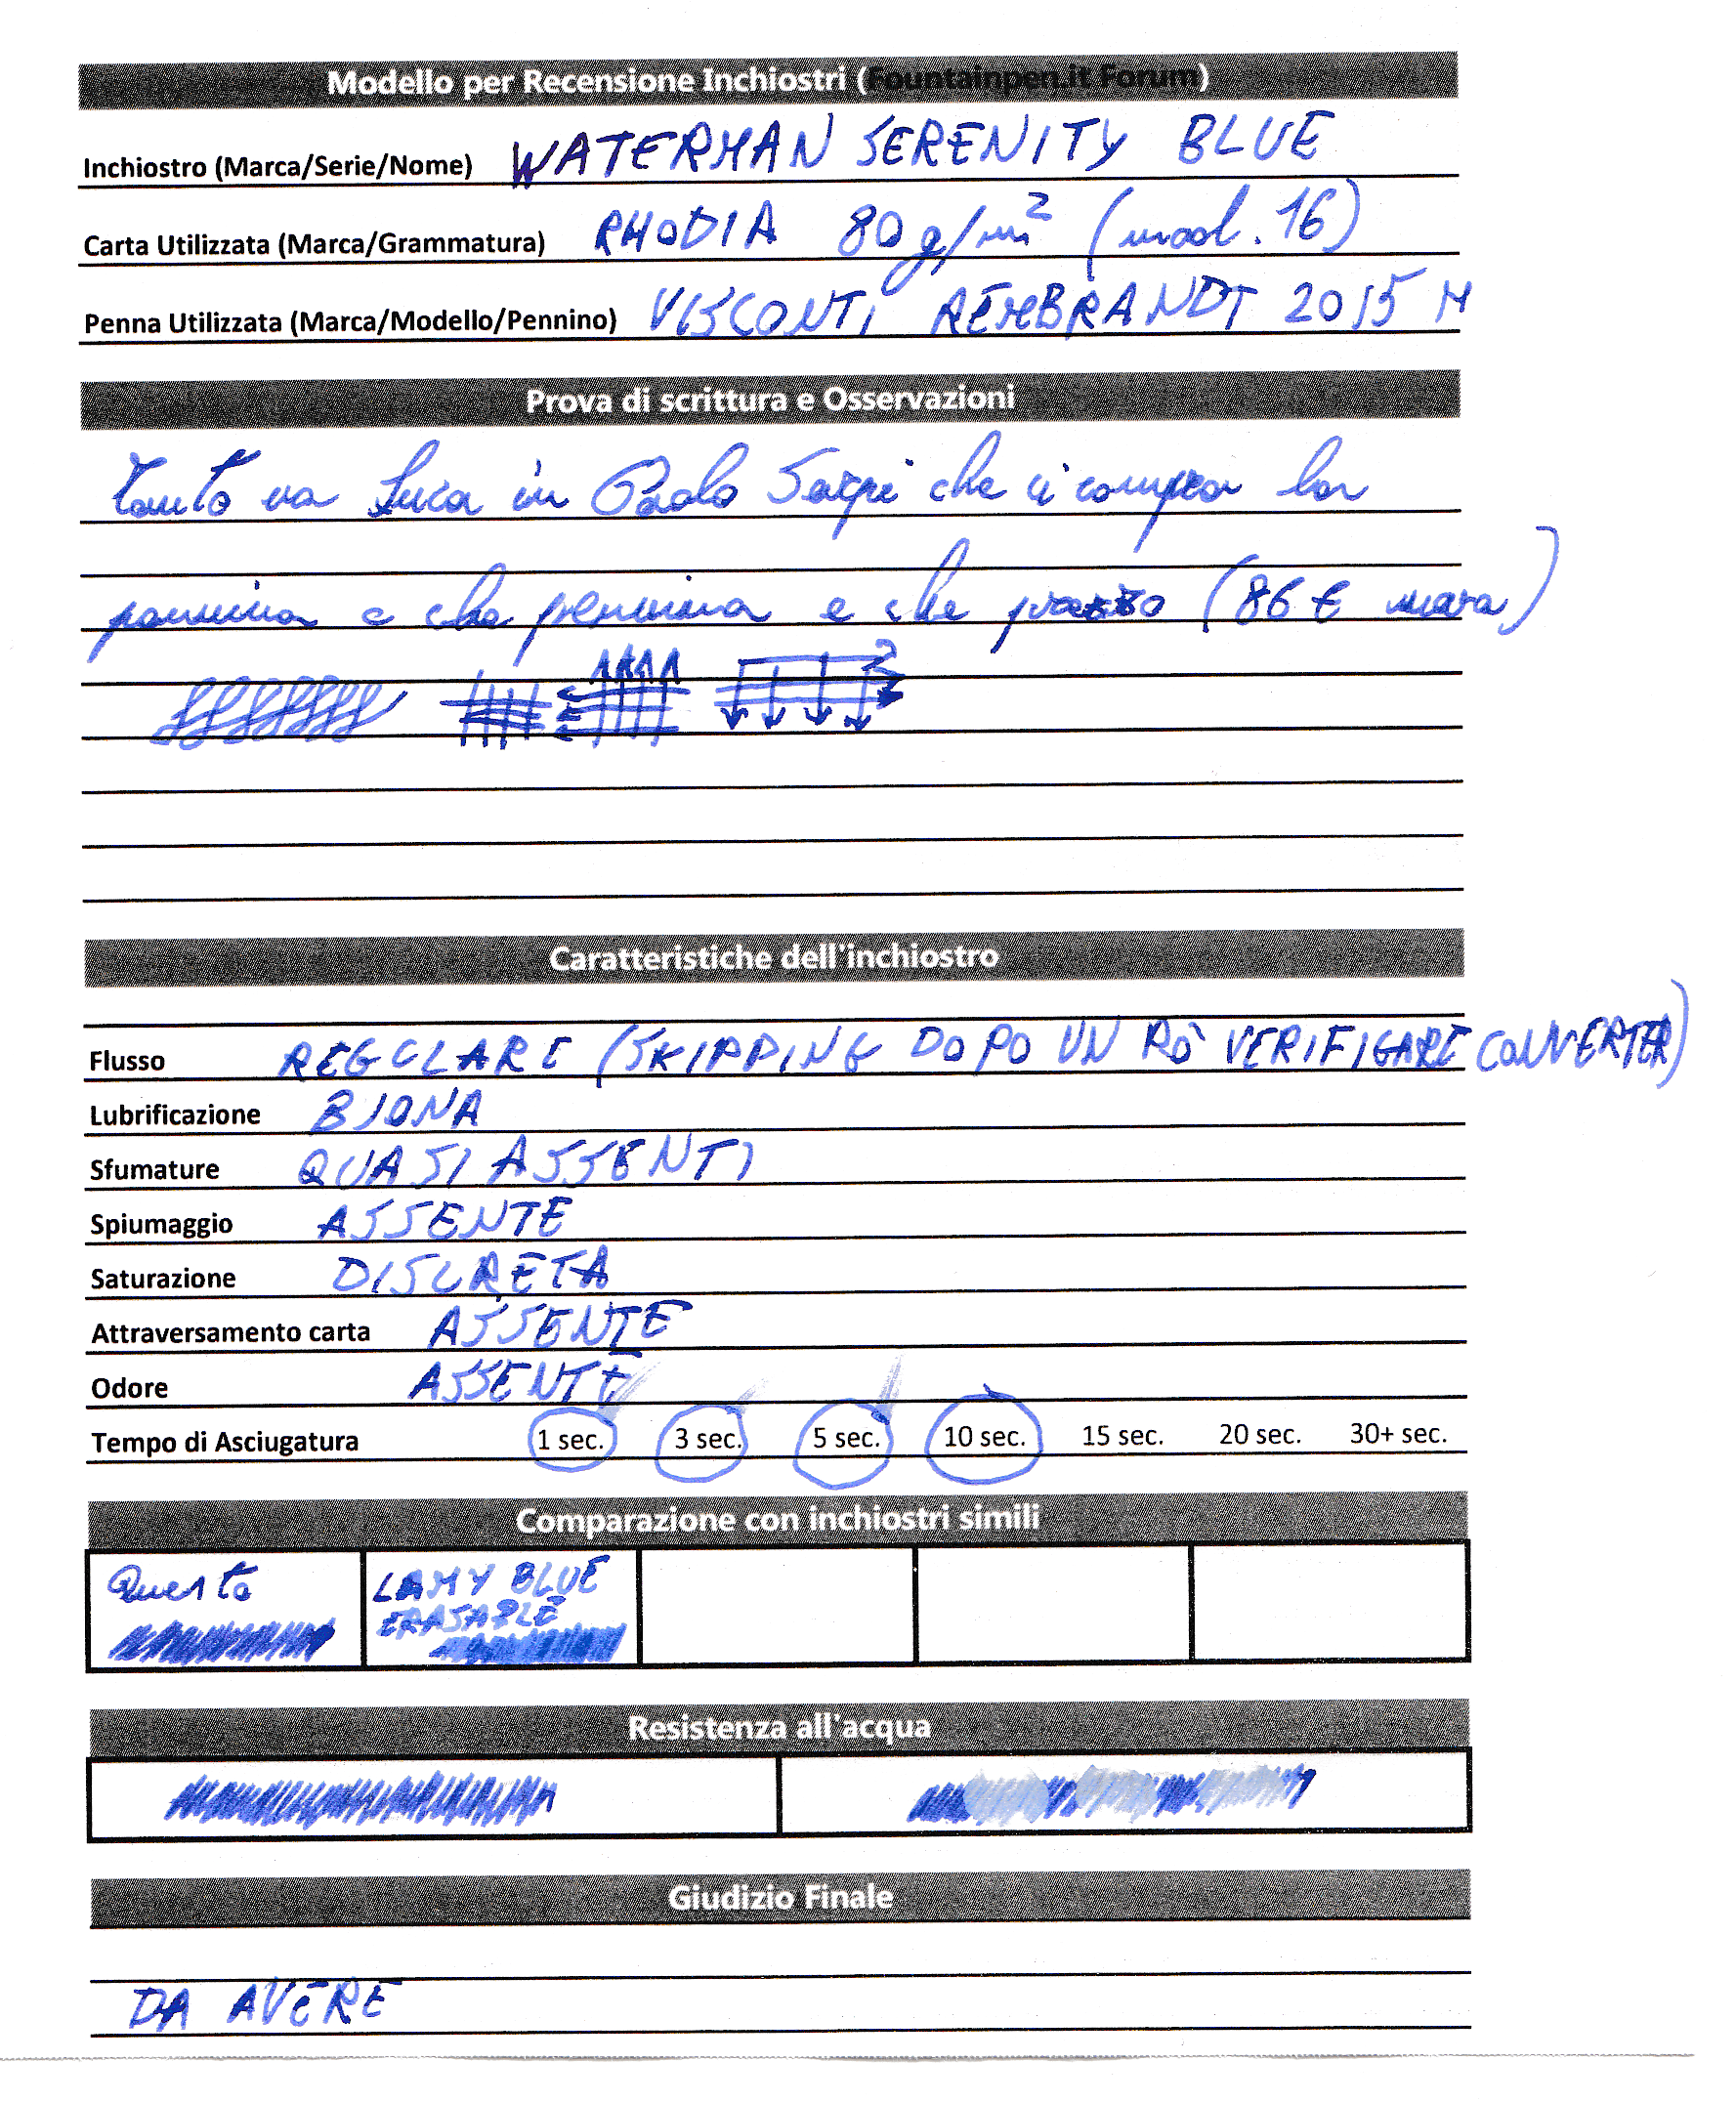 Modello per Recensione Inchiostri (Fountainpen.it Forum)
Inchiostro (Marca/Serie/Nome) WATERMAN SERENITY BLUE
Carta Utilizzata (Marca/Grammatura) RHODIA 80 g/m² (mod. 16)
Penna Utilizzata (Marca/Modello/Pennino) VISCONTI REMBRANDT 2015 M
Prova di scrittura e Osservazioni
Tanto va Luca in Paolo Sarpi che ci compra la
pennina e che pennina e che prezzo (86 €)
Caratteristiche dell'inchiostro
Flusso REGOLARE (SKIPPING DOPO UN PÒ VERIFICARE CONVERTER)
Lubrificazione BUONA
Sfumature QUASI ASSENTI
Spiumaggio ASSENTE
Saturazione DISCRETA
Attraversamento carta ASSENTE
Odore ASSENTE
Tempo di Asciugatura 1 sec. 3 sec. 5 sec. 10 sec. 15 sec. 20 sec. 30+ sec.
Comparazione con inchiostri simili
Questo LAMY BLUE
ERASABLE
Resistenza all'acqua
Giudizio Finale
DA AVERE